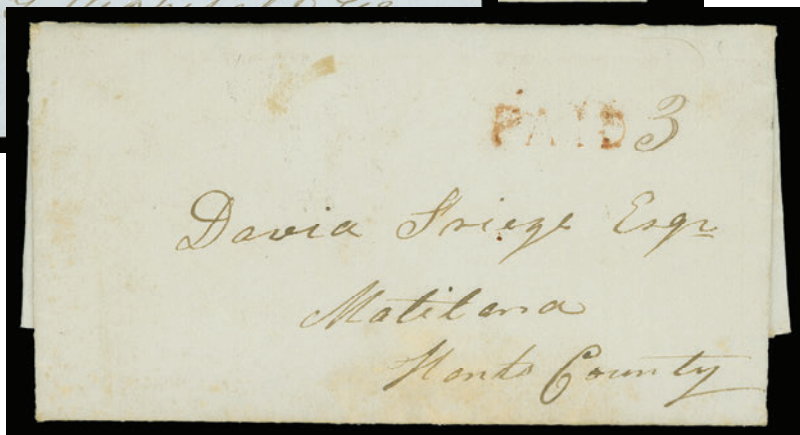 PAID 3
David Friege Esqr
Matilana
Hants County